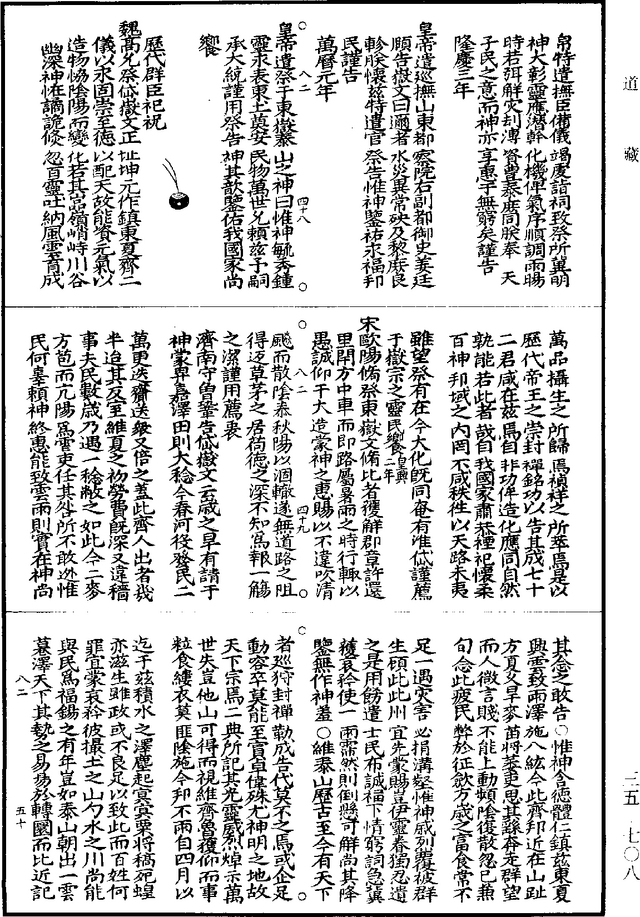 道藏
帛特遣撫臣備儀竭虔諳祠致祭所冀明
神大彰靈應潛幹化機俾氣序順調雨暘
時若弭解灾刦溥資豐泰庶同朕奉天
子民之意而神亦享惠宇無窮矣謹告
隆慶三年
皇帝遣巡撫山東都察院右副都御史姜廷
頤告嶽文曰邇者水災異常殃及黎庶艮
軫朕懷茲特遣官祭告惟神鑒祐永福邦
民謹告
萬曆元年
八二 四十八
皇帝遣祭于東嶽泰山之神曰惟神毓秀鍾
靈永表東土奠安民物萬世允賴茲予嗣
承大統謹用祭告神其歆鑒佑我國家尚
饗
歷代群臣祀祝
魏高允祭岱嶽文正址坤元作鎮東夏齊二
儀以永固崇至德以配天故能資元氣以
造物協陰陽而變化若其嵓嶺峭峙川谷
幽深神怪譎詭倐忽百靈吐納風雲育成
萬品攝生之所歸焉禎祥之所萃焉是以
歷代帝王之崇封禪銘功以告其成七十
二君咸在茲焉自非功侔造化應同自然
孰能若此者哉自我國家肅恭禋祀懷柔
百神邦域之內罔不咸秩往以天路未夷
雖望祭有在今大化既同奄有淮岱謹薦
于嶽宗之靈民饗皇興二年
宋歐陽脩祭東嶽文脩比者獲解郡章許還
里閈方中車而即路屬暑雨之時行輙以
愚誠仰干大造蒙神之惠賜以不違吹清
八二 四十九
飈而散陰泰秋陽以涸轍遂無道路之阻
得返草茅之居荷德之深不知爲報一觴
之潔謹用薦衷
齊南守曾鞏告岱嶽文至歲之旱有請于
神蒙畀嘉澤田則大稔今春河役發民二
萬更迭齎送縱又倍之蓋此齊人出者幾
半迨其反室維夏之初勞費既深又違穡
事夫民數歲乃遇一稔敝之如此今二麥
方苞而亢陽爲害吏任其咎所不敢逊惟
民何辜頼神終惠能致雲雨則實在神尚
其念之敢告○惟神含德體仁鎮茲東夏
興雲致雨澤施八紘今此齊邦近在山趾
方夏又早麥苗將萎吏思其繇奔走群望
而人微言賤不能上動頻陰復散忽已兼
旬念此疲民弊於征歛方歲之富食常不
足一遇灾害必捐溝壑惟神威列覆被群
生頋此此州宜先蒙賜豈伊靈眷獨忍遺
之是用飭遣士民布誠福下情窮詞急冀
穫哀矜使一雨霈然則倒懸可解尚其降
鑒無作神羞○維泰山歷古至今有天下
者巡狩封禪勤成告代莫不之焉或企足
動容卒莫能至實卓偉殊尤神明之地故
天下宗焉二典所記其光靈威烈焯示萬
世失豈他山可得而視維齊魯覆仰而事
粒食縷衣莫匪陰施今邦不雨自四月以
迄于茲積水之澤塵起寘寘粟將稿死蝗
亦滋生雖政或不良足以致此而百姓何
罪宜蒙哀矜彼撮土之山勺水之川尚能
與民爲福錫之有年豈如泰山朝出一雲
暮澤天下其勢之易易於轉圜而比近記
八二 五十
三五—七〇八